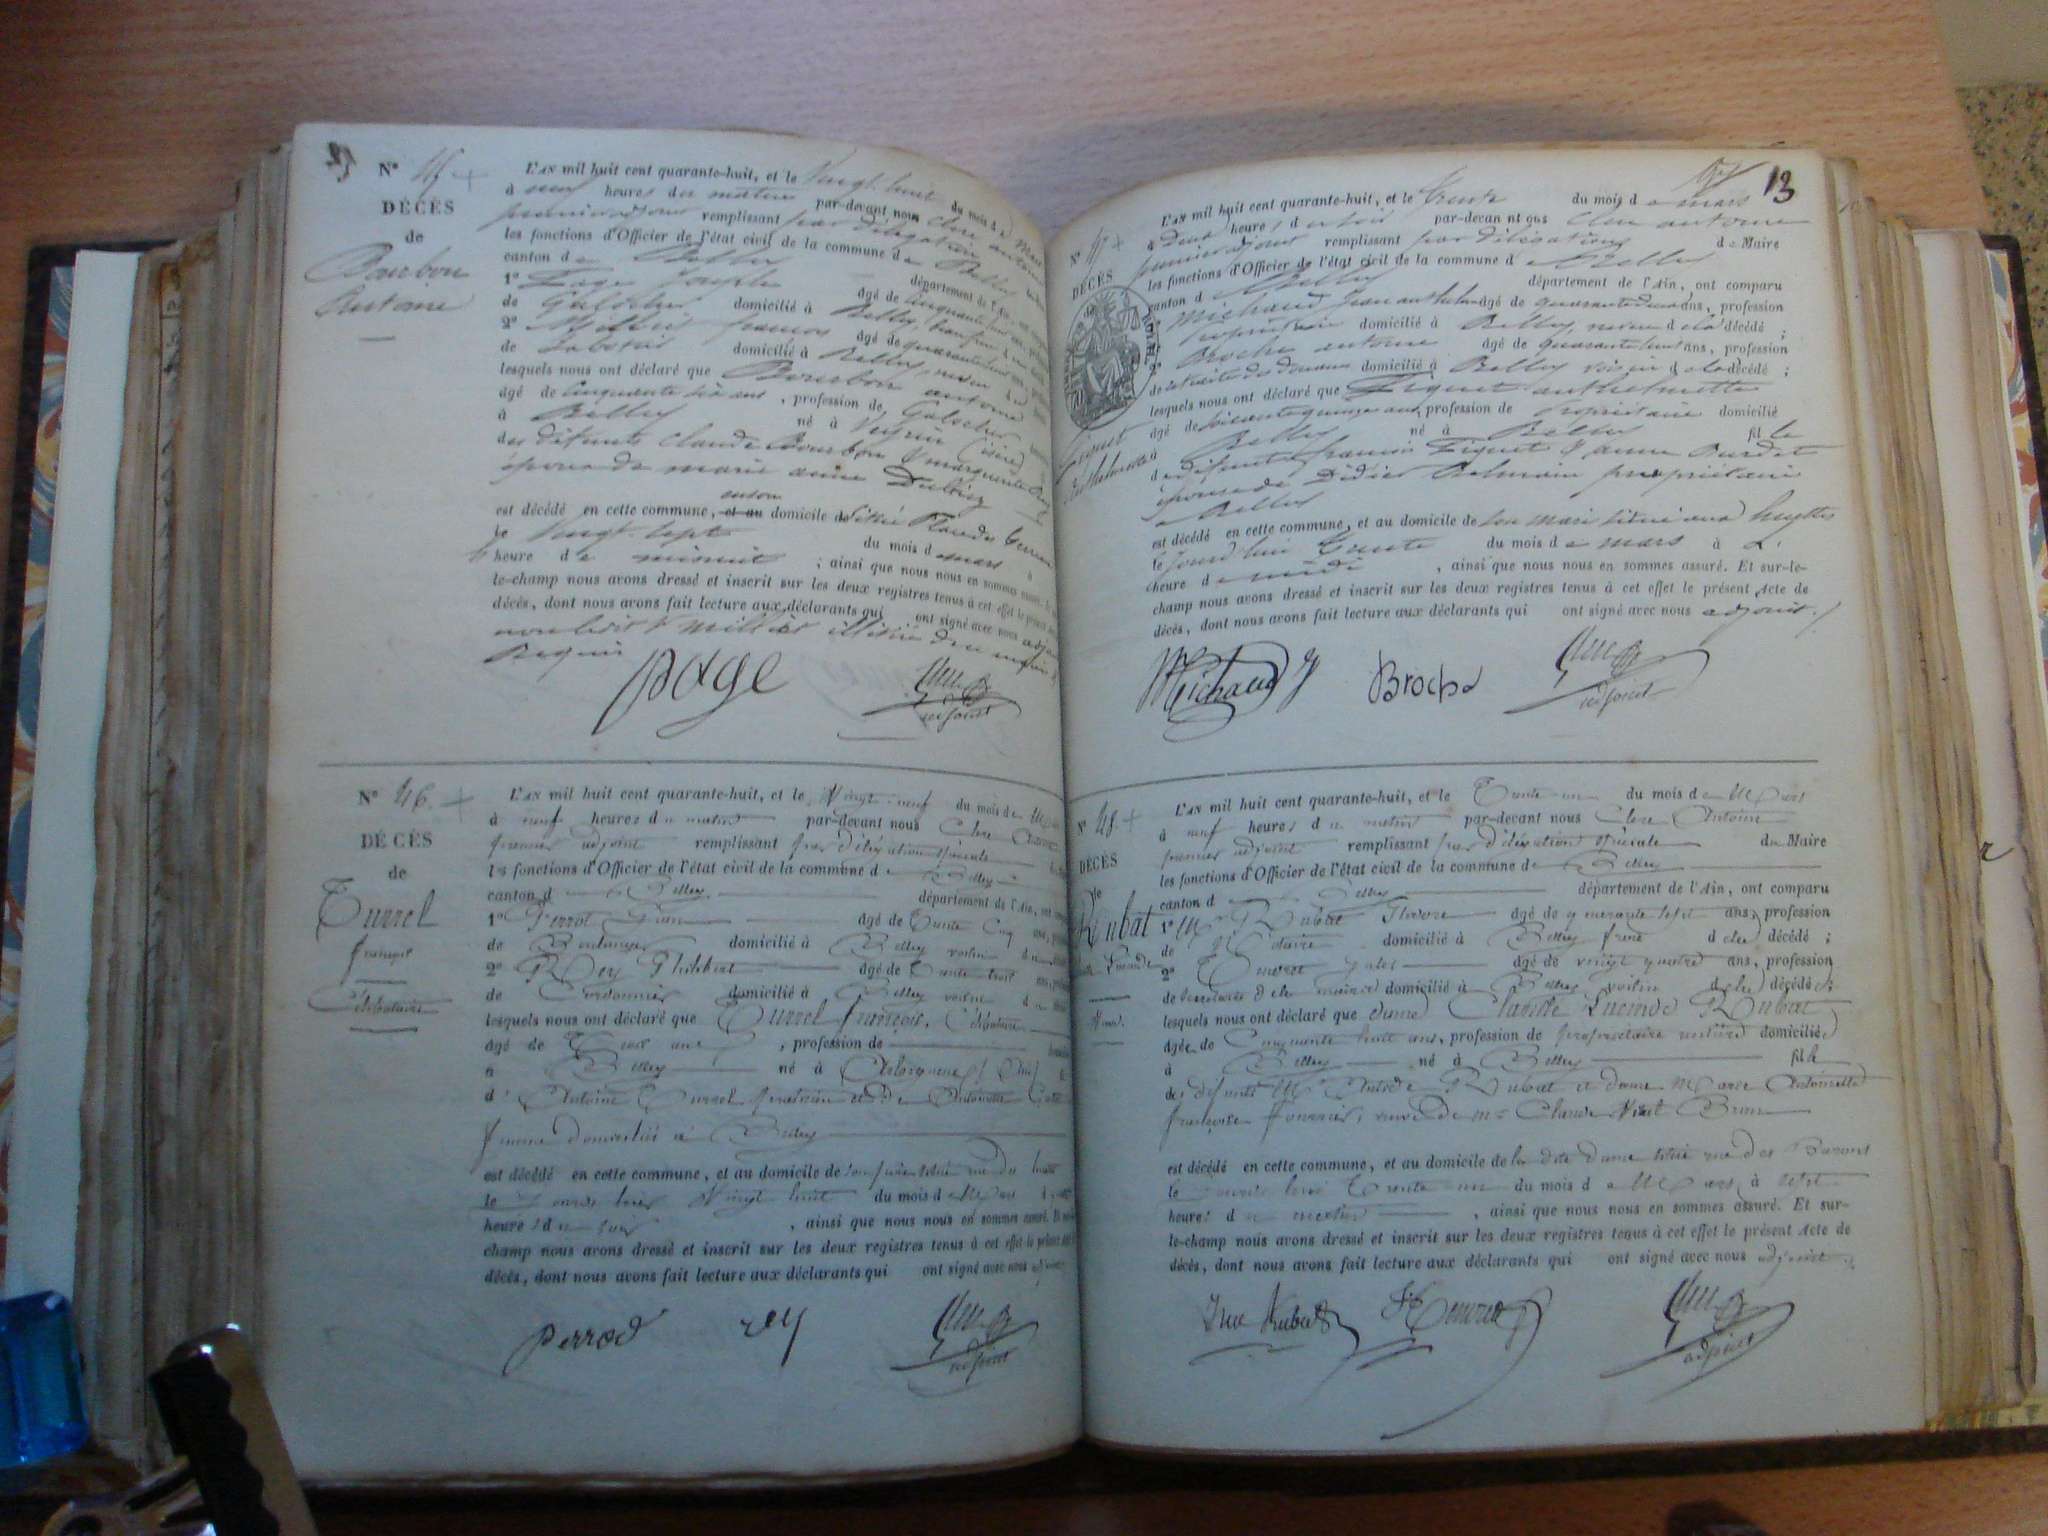 N° 45
DÉCÈS
de
Bourbon
Antoine
L'AN mil huit cent quarante-huit, et le Vingt huit du mois de Mars
à neuf heures du matin par-devant nous Clerc antoine
premier adjoint remplissant par délégation
les fonctions d'Officier de l'état civil de la commune de Belley
canton de Belley département de l'Ain, ont
1° Page Joseph âgé de cinquante
de Galocher domicilié à Belley, beau frère
2° françois âgé de quarante
de Sabotier domicilié à Belley, voisin
lesquels nous ont déclaré que Bourbon antoine
âgé de cinquante six ans, profession de Galocher
à Belley né à Veyrin (isère)
des défunts Claude Bourbon & marguerite
époux de marie anne
en son
est décédé en cette commune, et au domicile de situé
le Vingt-sept du mois de mars à
heure de minuit ; ainsi que nous nous en sommes
le-champ nous avons dressé et inscrit sur les deux registres tenus à cet effet le présent
décès, dont nous avons fait lecture aux déclarants qui ont signé avec nous adjoint
non ledit illitéré de ce
Requis
page
Clerc
adjoint
N° 46.
DÉCÈS
de
Turrel
françois
Célibataire
L'AN mil huit cent quarante-huit, et le Vingt-neuf du mois de Mars
à neuf heures du matin par-devant nous Clerc Antoine
premier adjoint remplissant par délégation spéciale
les fonctions d'Officier de l'état civil de la commune de Belley
canton de Belley département de l'Ain, ont
1° Perrot âgé de Trente Cinq
de Boulanger domicilié à Belley voisin
2° Rey Philibert âgé de Trente trois
de Cordonnier domicilié à Belley voisin
lesquels nous ont déclaré que Turrel françois, Célibataire
âgé de ans, profession de
à Belley né à (Ain)
d' Antoine Turrel et de Antoinette
femme domiciliés à Belley
est décédé en cette commune, et au domicile de son père situé rue du
le jour d'hier Vingt huit du mois de Mars à
heures du soir , ainsi que nous nous en sommes assuré. Et
champ nous avons dressé et inscrit sur les deux registres tenus à cet effet le présent
décès, dont nous avons fait lecture aux déclarants qui ont signé avec nous adjoint
perrod
rey
Clerc
adjoint
13
N° 47
DÉCÈS
de
Tiguet
anthelmette
L'AN mil huit cent quarante-huit, et le trente du mois de mars
à deux heures du soir par-devant nous Clerc antoine
premier adjoint remplissant par délégation de Maire
les fonctions d'Officier de l'état civil de la commune de Belley
canton de Belley département de l'Ain, ont comparu
Michaud Jean anthelme âgé de quarante deux ans, profession
propriétaire domicilié à Belley, neveu de la décédé ;
2° Broche antoine âgé de quarante huit ans, profession
de retraité des douanes domicilié à Belley voisin de la décédé ;
lesquels nous ont déclaré que Tiguet anthelmette
âgé de soixante quinze ans, profession de propriétaire domicilié
à Belley né à Belley fille
des défunts françois Tiguet & anne
épouse de Didier propriétaire
à Belley
est décédé en cette commune, et au domicile de son mari situé aux huguettes
le Jourd'hui trente du mois de mars à
heure de midi , ainsi que nous nous en sommes assuré. Et sur-le-
champ nous avons dressé et inscrit sur les deux registres tenus à cet effet le présent Acte de
décès, dont nous avons fait lecture aux déclarants qui ont signé avec nous adjoint./.
Michaud
Broche
Clerc
adjoint
N° 48.
DÉCÈS
de
Rubat
Lucinde
Veuve.
L'AN mil huit cent quarante-huit, et le Trente-un du mois de Mars
à neuf heures du matin par-devant nous Clerc Antoine
premier adjoint remplissant par délégation spéciale du Maire
les fonctions d'Officier de l'état civil de la commune de Belley
canton d Belley département de l'Ain, ont comparu
1° Mr Rubat âgé de quarante sept ans, profession
de Notaire domicilié à Belley frère de la décédé ;
2° âgé de vingt quatre ans, profession
de Secrétaire de la mairie domicilié à Belley voisin de la décédé ;
lesquels nous ont déclaré que dame Lucinde Rubat
âgée de Cinquante huit ans, profession de propriétaire rentière domiciliée
à Belley né à Belley fille
des défunts Mr Rubat et dame Marie Antoinette
françoise veuve de Mr Claude Brun
est décédé en cette commune, et au domicile de la dite dame situé rue des Barons
le jourd'hui Trente un du mois de Mars, à sept
heures du matin , ainsi que nous nous en sommes assuré. Et sur-
le-champ nous avons dressé et inscrit sur les deux registres tenus à cet effet le présent Acte de
décès, dont nous avons fait lecture aux déclarants qui ont signé avec nous adjoint ./.
Rubat
Clerc
adjoint